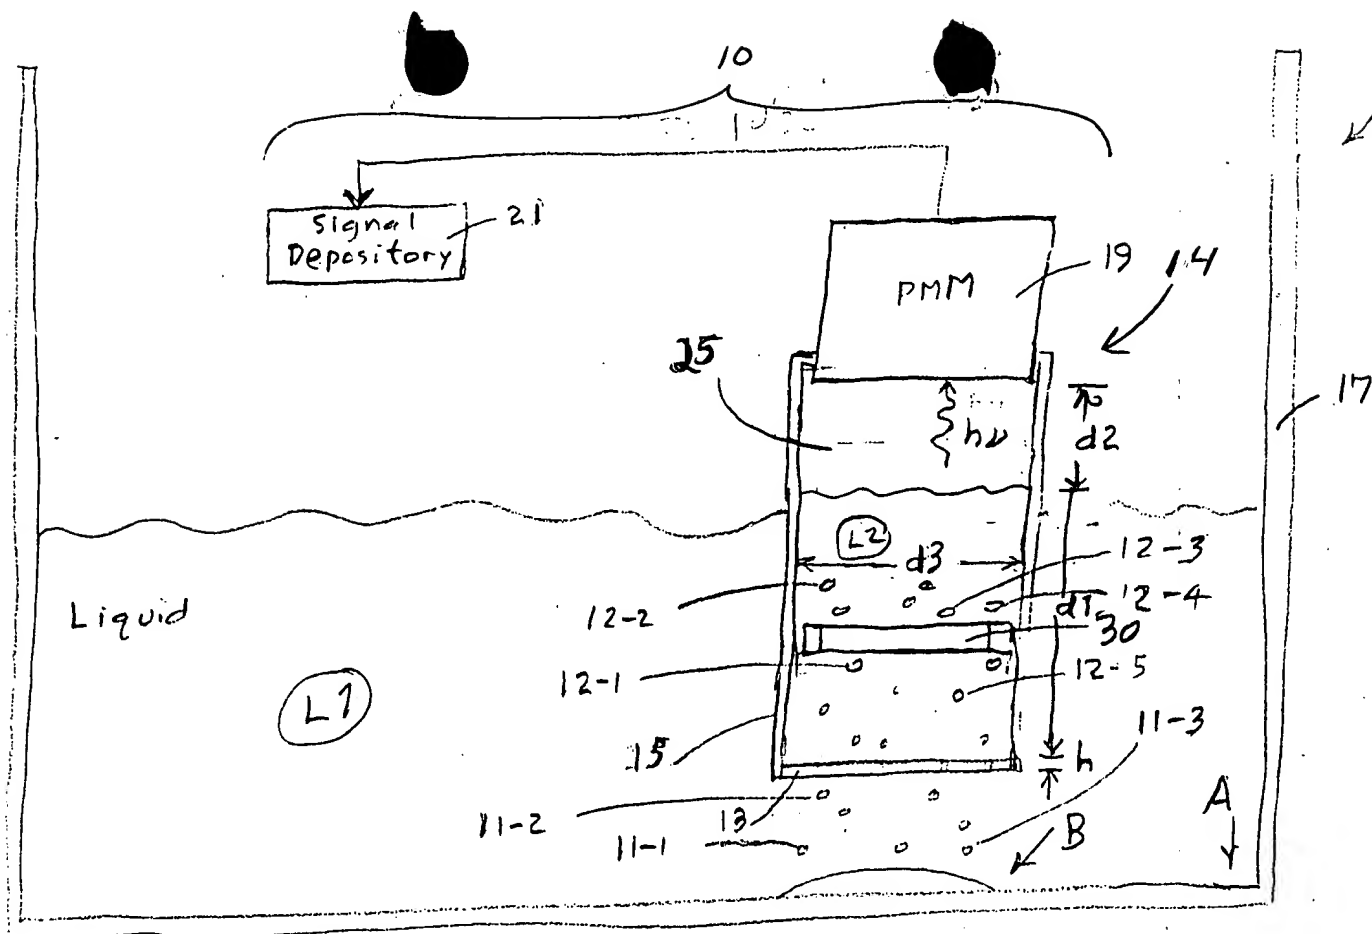 10
Signal
Depository
21
PMM
19
14
25
hν
d2
17
L2
d3
12-3
12-2
d1
12-4
30
Liquid
12-1
12-5
L1
15
11-3
h
11-2
13
11-1
B
A